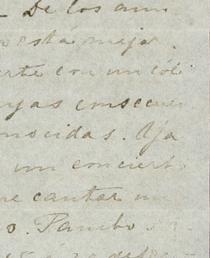 De los ami
está mejo
erte con un cóli
uyas consecuen
nocidas. Aja
un conciert
e cantar un
o. Pancho